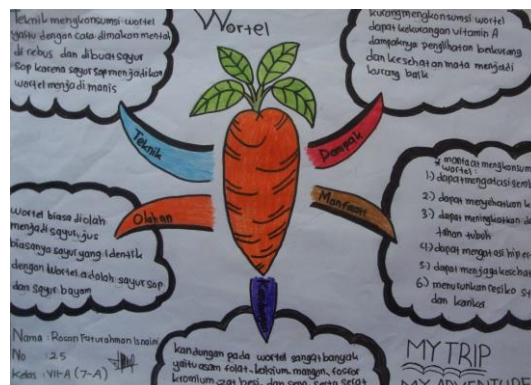 Wortel
Teknik mengkonsumsi wortel
yaitu dengan cara dimakan mentah
di rebus dan dibuat sayur
sop karena sayur sop menjadikan
wortel menjadi manis
kurang mengkonsumsi wortel
dapat kekurangan vitamin A
dampaknya penglihatan berkurang
dan kesehatan mata menjadi
kurang baik
Teknik
Dampak
Olahan
Manfaat
wortel biasa diolah
menjadi sayur, jus
biasanya sayur yang identik
dengan wortel adalah sayur sop
dan sayur bayam
manfaat mengkonsum
wortel:
1) dapat mengatasi
2) dapat
3) dapat meningkatkan
tahan tubuh
4) dapat mengatasi
5) dapat menjaga
6) menurunkan resiko
dan kanker
kandungan pada wortel sangat banyak
yaitu asam folat, kalsium, mangan, fosfor
kromium, zat besi, dan
serta serat
Nama : Rosan Faturahman
No : 25
Kelas : VII-A (7-A)
MY TRIP
MY ADVENTURE